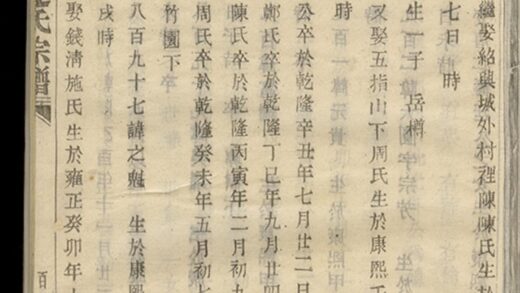 繼娶紹興城外村裡陳陳氏生於
七日時
生一子　岳樽
又娶五指山下周氏生於康熙
時
公卒於乾隆辛丑年七月廿二日
鄭氏卒於乾隆丁巳年九月廿四
陳氏卒於乾隆丙寅年二月初九
周氏卒於乾隆癸未年五月初七
竹園下
八百九十七諱之魁　生於康熙
戌時
娶錢清施氏生於雍正癸卯年十
氏宗譜
百